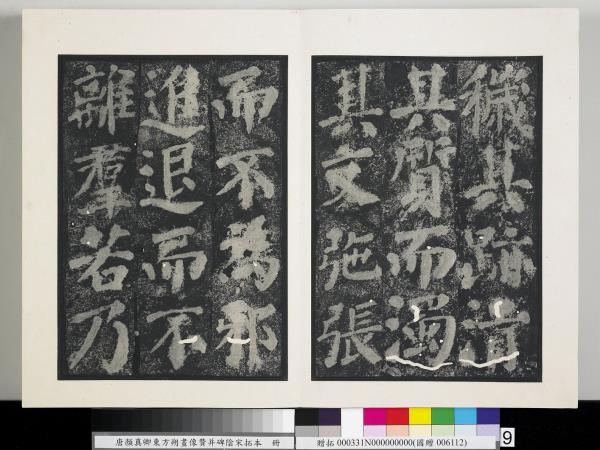 穢其跡清
其質而濁
其文弛張
而不為邪
進退而不
離羣若乃
唐顏真卿東方朔畫像贊并碑陰宋拓本 冊
贈拓 000331N000000000(國贈 006112)
9